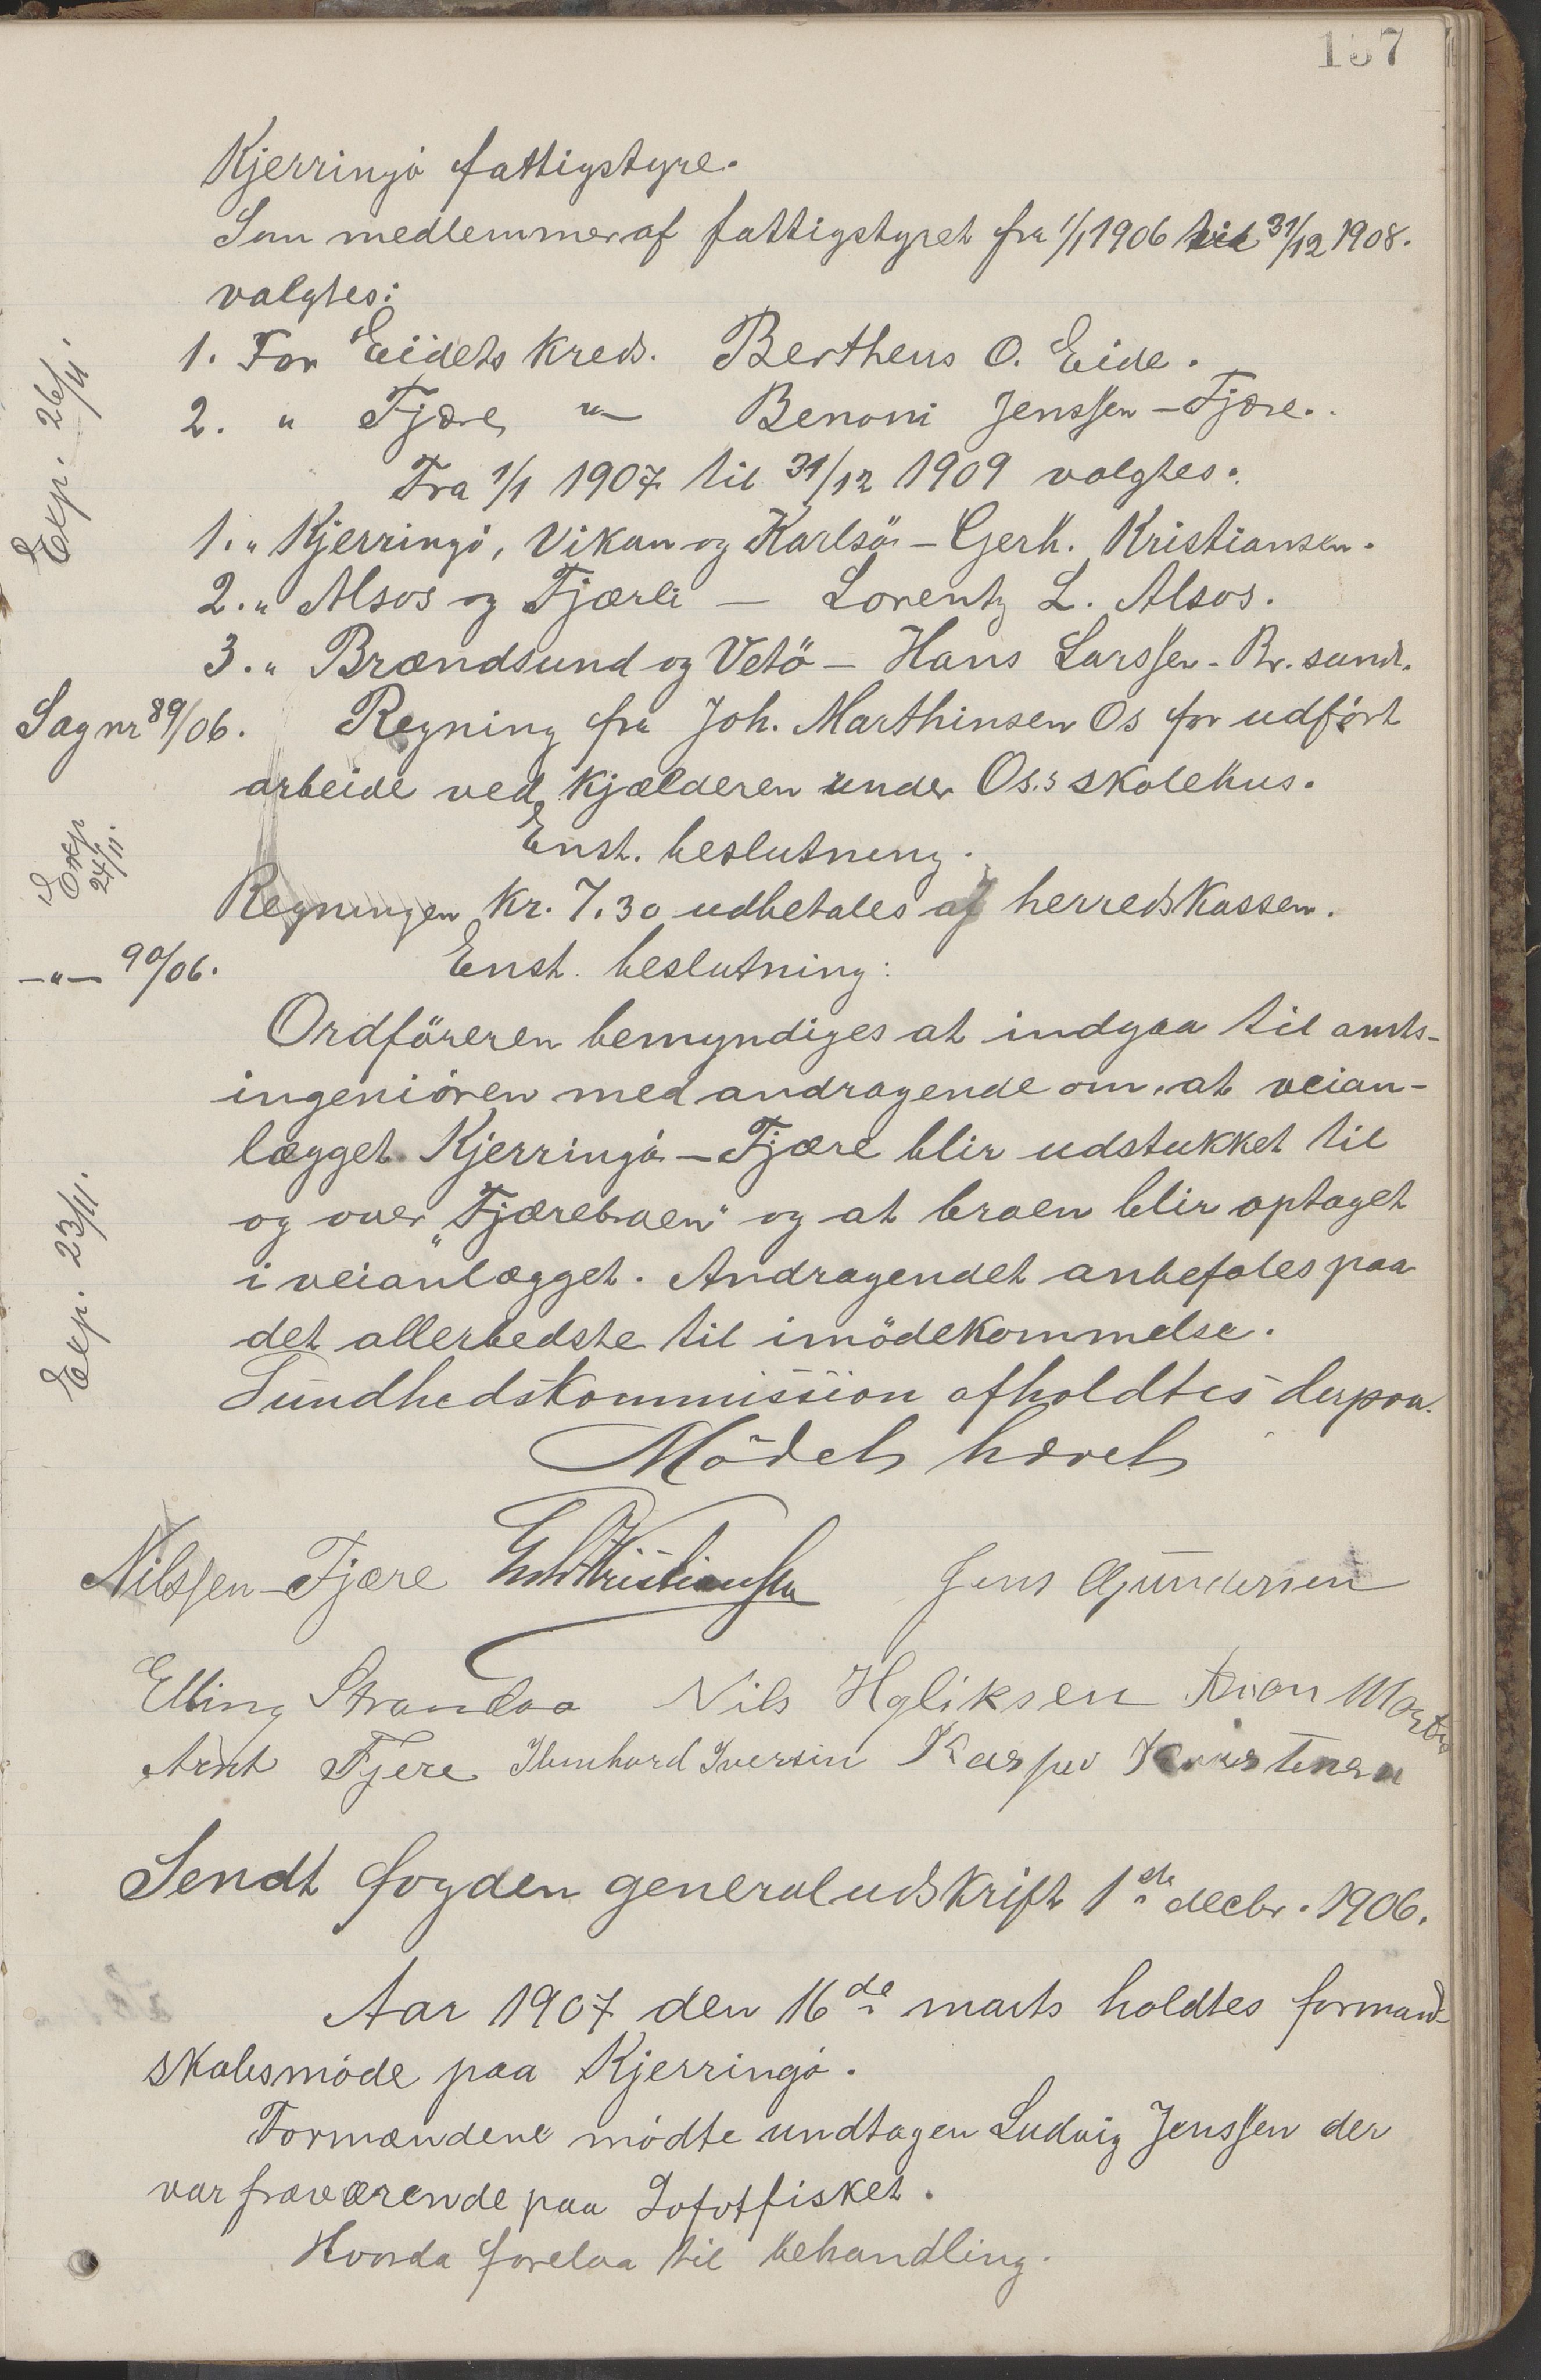 157
Kjerringö fattigstyre.
Som medlemmer af fattigstyret fra 1/1 1906 til 31/12 1908.
valgtes:
1. For Eidets kreds. Bertheus O. Eide.
Exp. 26/11.
2. " Fjære -"- Benoni Jenssen - Fjære.
Fra 1/1 1907 til 31/12 1909 valgtes.
1. " Kjerringö, Vikan og Karlsö - Gerh. Kristiansen.
2. " Alsos og Fjærli - Lorentz L. Alsos.
3. " Brændsund og Vetö - Hans Larssen - Br. sund.
Sag nr 89/06. Regning fra Joh. Marthinsen Os for udført
arbeide ved kjælderen under Os.s skolehus.
Enst. beslutning.
Exp 24/11.
Regningen kr. 7.30 udbetales af herredskassen.
-"- 90/06. Enst. beslutning:
Ordföreren bemyndiges at indgaa til amts-
ingeniören med andragende om, at veian-
lægget Kjerringö - Fjære blir udstukket til
og over "Fjærebroen" og at broen blir optaget
Exp. 23/11.
i veianlægget. Andragendet anbefales paa
det allerbedste til imödekommelse.
Sundhedskommission afholdtes derpaa.
Mödet hævet
Nilssen - Fjære Gerh Kristianssen Jens Gundersen
Elling Strandaa Nils Hgliksen
Arnt Fjere Iversen Kasper
Sendt fogden generaludskrift 1ste decbr. 1906.
Aar 1907 den 16de marts holdtes formand-
skabsmöde paa Kjerringö.
Formændene mödte undtagen Ludvig Jenssen der
var fraværende paa Lofotfisket.
Hvorda forelaa til behandling.